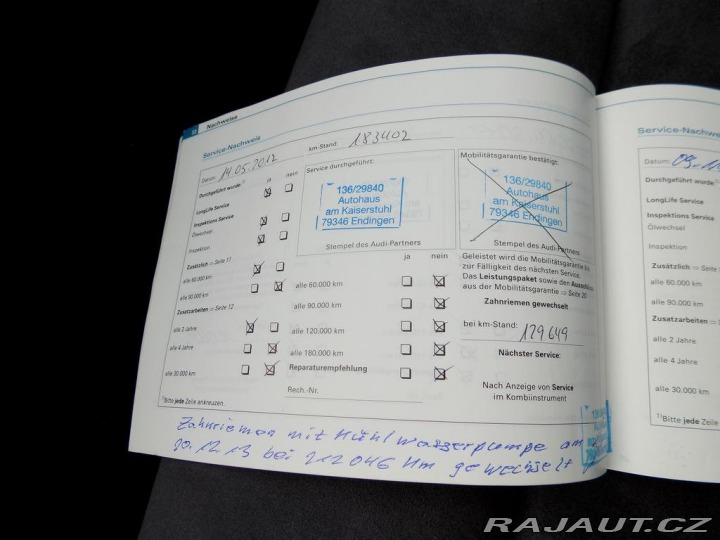 32 Nachweise
Service-Nachweis
Datum: 14.05.2012
km-Stand: 183402
ja nein
Durchgeführt wurde¹⁾
LongLife Service
Inspektions Service
Ölwechsel
Inspektion
Zusätzlich ⇒ Seite 11
alle 60.000 km
alle 90.000 km
Zusatzarbeiten ⇒ Seite 12
alle 2 Jahre
alle 4 Jahre
alle 30.000 km
¹⁾Bitte jede Zeile ankreuzen.
Service durchgeführt:
136/29840
Autohaus
am Kaiserstuhl
79346 Endingen
Stempel des Audi-Partners
ja nein
alle 60.000 km
alle 90.000 km
alle 120.000 km
alle 180.000 km
Reparaturempfehlung
Rech.-Nr.
Mobilitätsgarantie bestätigt:
136/29840
Autohaus
am Kaiserstuhl
79346 Endingen
Stempel des Audi-Partners
Geleistet wird die Mobilitätsgarantie bis
zur Fälligkeit des nächsten Service.
Das Leistungspaket sowie den
aus der Mobilitätsgarantie ⇒ Seite 20
Zahnriemen gewechselt
bei km-Stand: 129649
Nächster Service:
Nach Anzeige von Service
im Kombiinstrument
Zahnriemen mit Kühlwasserpumpe am
20.12.13 bei 212046 Km gewechselt
Service-Nachw
Datum:
Durchgeführt wurde
LongLife Service
Inspektions Service
Ölwechsel
Inspektion
Zusätzlich ⇒ Seite
alle 60.000 km
alle 90.000 km
Zusatzarbeiten ⇒
alle 2 Jahre
alle 4 Jahre
alle 30.000 km
¹⁾Bitte jede Zeile
RAJAUT.CZ